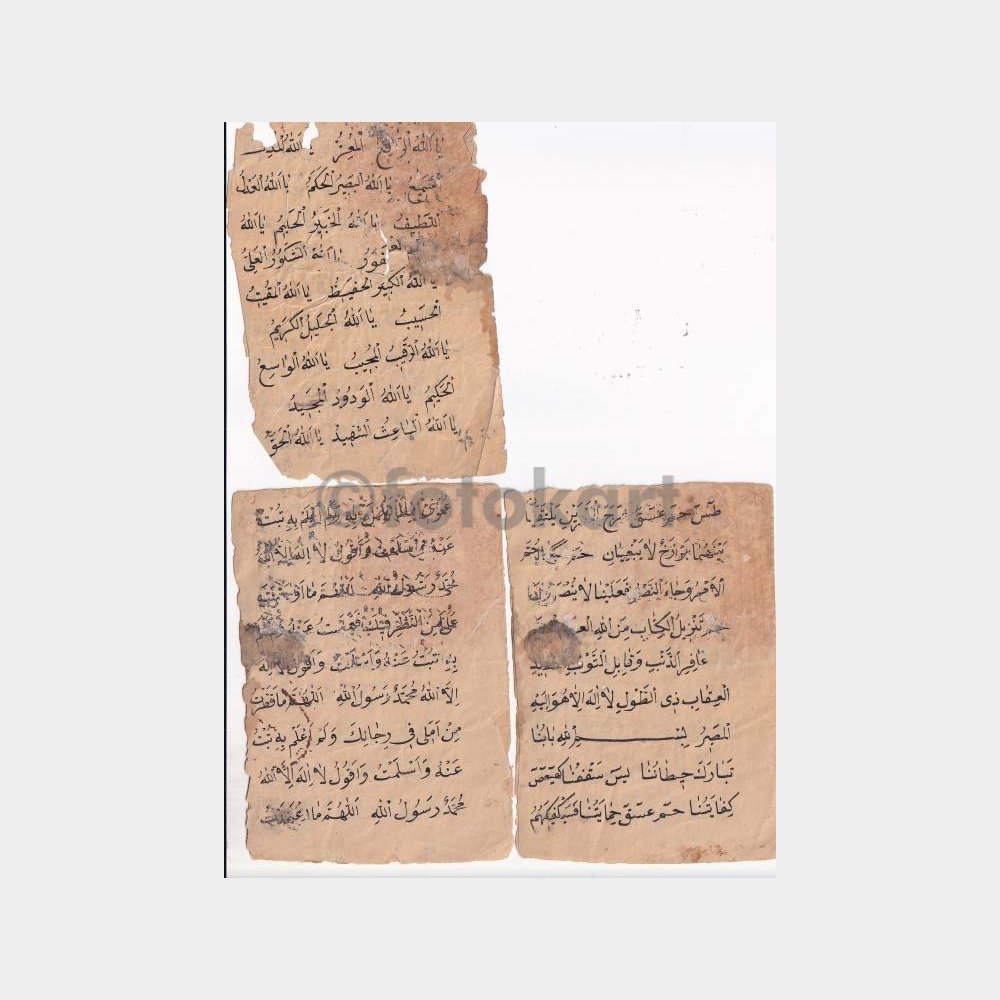 يا الله الرافع المعز يا الله المذل
السميع يا الله البصير الحكم يا الله العدل
اللطيف يا الله الخبير الحليم يا الله
يا الله الشكور العلي
يا الله الكبير الحفيظ يا الله المقيت
الحسيب يا الله الجليل الكريم
يا الله الرقيب المجيب يا الله الواسع
الحكيم يا الله الودود المجيد
يا الله الباعث الشهيد يا الله الحق
©fotokart
طس حم عسق مرج البحرين يلتقيان
بينهما برزخ لا يبغيان حم
الامر وجاء النصر فعلينا لا ينصرون
حم تنزيل الكتاب من الله العزيز
غافر الذنب وقابل التوب
العقاب ذي الطول لا اله الا هو اليه
المصير بسم الله بابنا
تبارك حيطاننا يس سقفنا كهيعص
كفايتنا حم عسق حمايتنا فسيكفيكهم
ولم اعلم به تبت
عنه واسلمت واقول لا اله الا الله
محمد رسول الله اللهم ما
علي من النظر تبت عنه
به تبت عنه واسلمت واقول لا اله
الا الله محمد رسول الله اللهم ما قصرت
من املي في رجائك ولم اعلم به تبت
عنه واسلمت واقول لا اله الا الله
محمد رسول الله اللهم ما